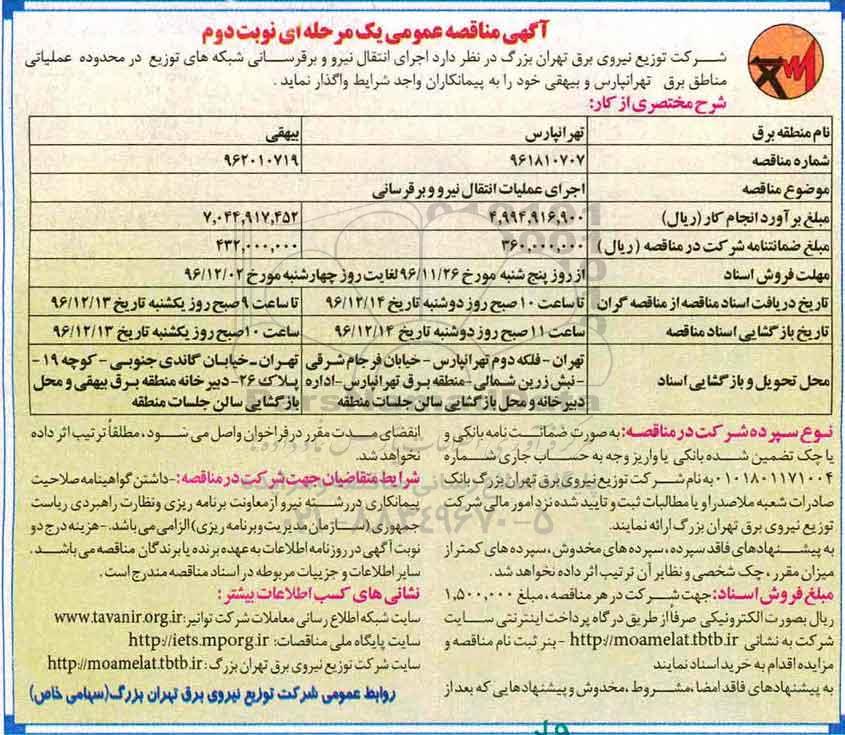 آگهی مناقصه عمومی یک مرحله ای نوبت دوم
شرکت توزیع نیروی برق تهران بزرگ در نظر دارد اجرای انتقال نیرو و برقرسانی شبکه های توزیع در محدوده عملیاتی
مناطق برق تهرانپارس و بیهقی خود را به پیمانکاران واجد شرایط واگذار نماید .
شرح مختصری از کار:
نام منطقه برق تهرانپارس بیهقی
شماره مناقصه ۹۶۱۸۱۰۷۰۷ ۹۶۲۰۱۰۷۱۹
موضوع مناقصه اجرای عملیات انتقال نیرو و برقرسانی
مبلغ برآورد انجام کار (ریال) ۴,۹۹۴,۹۱۶,۹۰۰ ۷,۰۴۴,۹۱۷,۴۵۲
مبلغ ضمانتنامه شرکت در مناقصه (ریال) ۳۶۰,۰۰۰,۰۰۰ ۴۳۲,۰۰۰,۰۰۰
مهلت فروش اسناد از روز پنج شنبه مورخ ۹۶/۱۱/۲۶ لغایت روز چهارشنبه مورخ ۹۶/۱۲/۰۲
تاریخ دریافت اسناد مناقصه از مناقصه گران تا ساعت ۱۰ صبح روز دوشنبه تاریخ ۹۶/۱۲/۱۴ تا ساعت ۹ صبح روز یکشنبه تاریخ ۹۶/۱۲/۱۳
تاریخ بازگشایی اسناد مناقصه ساعت ۱۱ صبح روز دوشنبه تاریخ ۹۶/۱۲/۱۴ ساعت ۱۰ صبح روز یکشنبه تاریخ ۹۶/۱۲/۱۳
محل تحویل و بازگشایی اسناد
تهران - فلکه دوم تهرانپارس - خیابان فرجام شرقی
- نبش زرین شمالی - منطقه برق تهرانپارس - اداره
دبیرخانه و محل بازگشایی سالن جلسات منطقه
تهران - خیابان گاندی جنوبی - کوچه ۱۹ -
پلاک ۲۶ - دبیرخانه منطقه برق بیهقی و محل
بازگشایی سالن جلسات منطقه
نوع سپرده شرکت در مناقصه: به صورت ضمانت نامه بانکی و
یا چک تضمین شده بانکی یا واریز وجه به حساب جاری شماره
۰۱۰۱۸۰۱۱۷۱۰۰۴ به نام شرکت توزیع نیروی برق تهران بزرگ بانک
صادرات شعبه ملاصدرا و یا مطالبات ثبت و تایید شده نزد امور مالی شرکت
توزیع نیروی برق تهران بزرگ ارائه نمایند.
به پیشنهادهای فاقد سپرده، سپرده های مخدوش، سپرده های کمتر از
میزان مقرر، چک شخصی و نظایر آن ترتیب اثر داده نخواهد شد.
مبلغ فروش اسناد: جهت شرکت در هر مناقصه ، مبلغ ۱,۵۰۰,۰۰۰
ریال بصورت الکترونیکی صرفاً از طریق درگاه پرداخت اینترنتی سایت
شرکت به نشانی http://moamelat.tbtb.ir - بنر ثبت نام مناقصه و
مزایده اقدام به خرید اسناد نمایند
به پیشنهادهای فاقد امضا، مشروط ، مخدوش و پیشنهادهایی که بعد از
انقضای مدت مقرر در فراخوان واصل می شود ، مطلقاً ترتیب اثر داده
نخواهد شد.
شرایط متقاضیان جهت شرکت در مناقصه: -داشتن گواهینامه صلاحیت
پیمانکاری در رشته نیرو از معاونت برنامه ریزی و نظارت راهبردی ریاست
جمهوری (سازمان مدیریت و برنامه ریزی) الزامی می باشد. - هزینه درج دو
نوبت آگهی در روزنامه اطلاعات به عهده برنده یا برندگان مناقصه می باشد .
سایر اطلاعات و جزییات مربوطه در اسناد مناقصه مندرج است .
نشانی های کسب اطلاعات بیشتر :
سایت شبکه اطلاع رسانی معاملات شرکت توانیر: www.tavanir.org.ir
سایت پایگاه ملی مناقصات: http://iets.mporg.ir
سایت شرکت توزیع نیروی برق تهران بزرگ: http://moamelat.tbtb.ir
روابط عمومی شرکت توزیع نیروی برق تهران بزرگ (سهامی خاص)